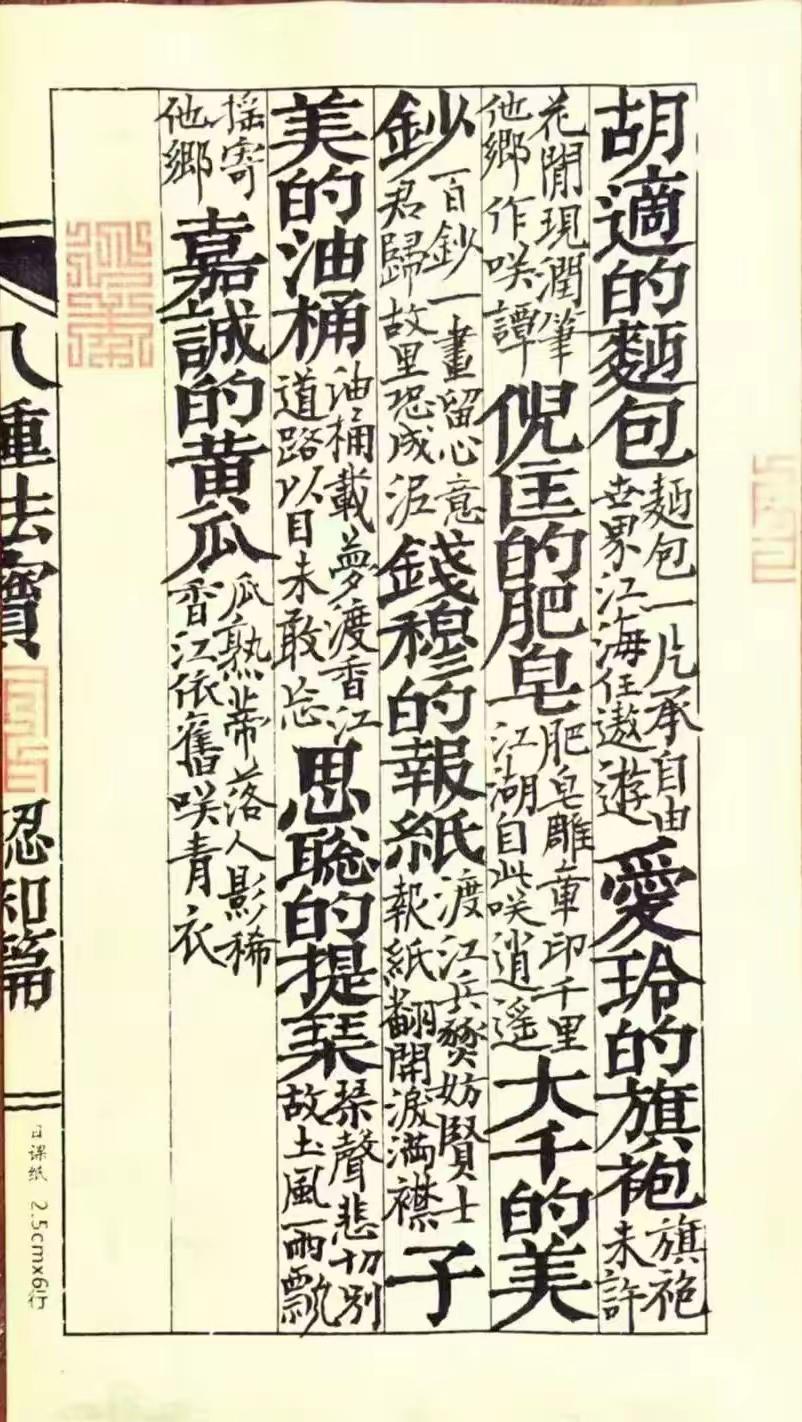 胡適的麵包
麵包一片承自由
世界江海任遨遊
愛玲的旗袍
旗袍
未許
花閒現潤筆
他鄉作咲譚
倪匡的肥皂
肥皂雕章印千里
江湖自此咲逍遥
大千的美
鈔
百鈔一畫留心意
君歸故里恐成泥
錢穆的報紙
渡江兵燹妨賢士
報紙翻開淚滿襟
子
美的油桶
油桶載夢渡香江
道路以目未敢忘
思聰的提琴
琴聲悲切別
故土風雨飄
摇寄
他鄉
嘉誠的黄瓜
瓜熟蒂落人影稀
香江依舊咲青衣
八重法寶
認知篇
日课纸 2.5cmx6行